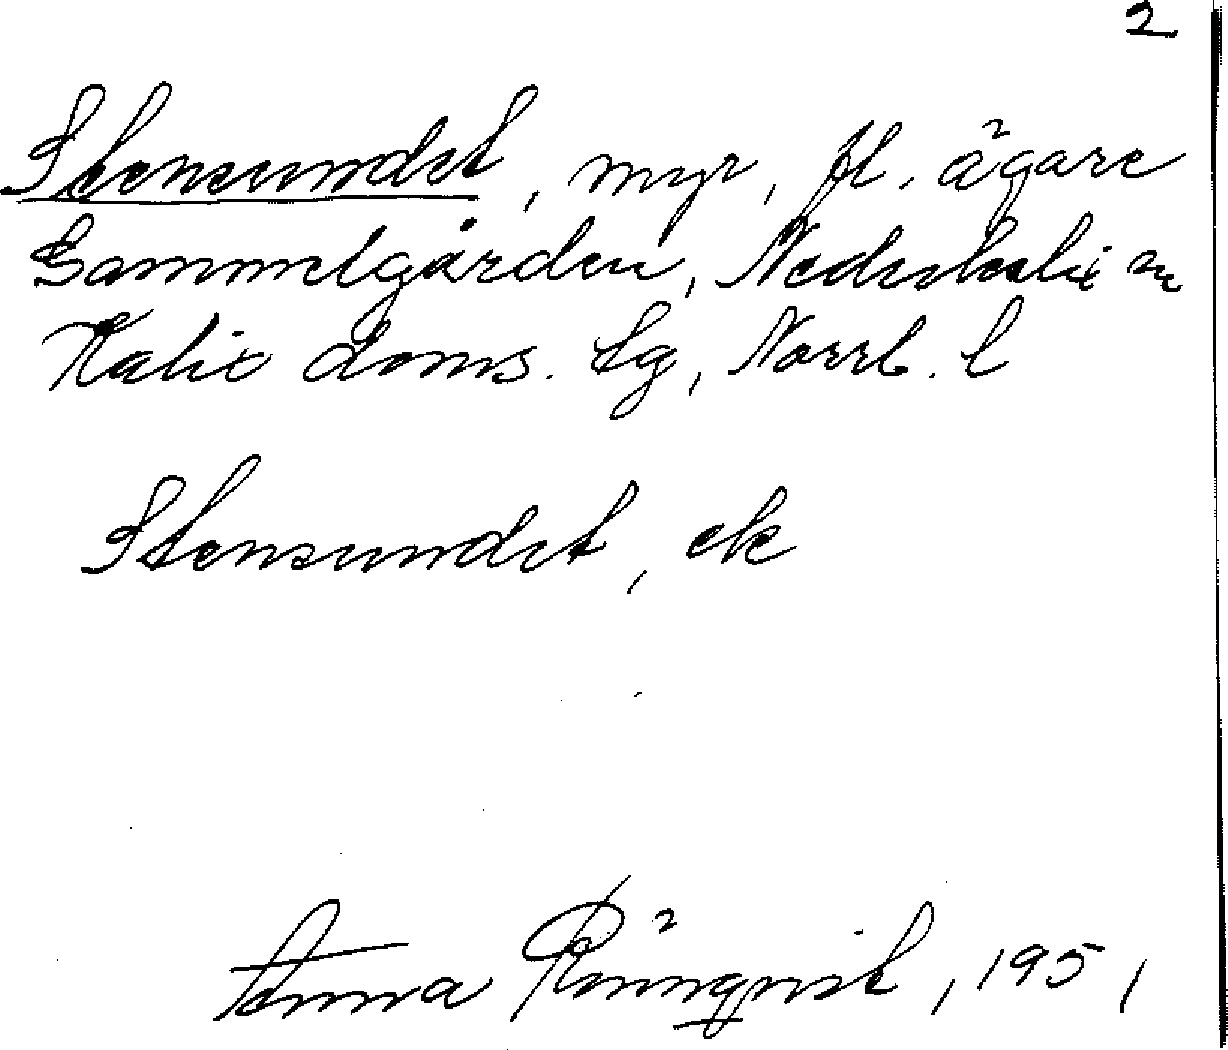 2
Stensundet, myr, fl. ägare
Gammelgården, Nederkalix sn
Kalix doms. lg, Norrb. l
Stensundet, ek
Anna Rönnqvist, 1951